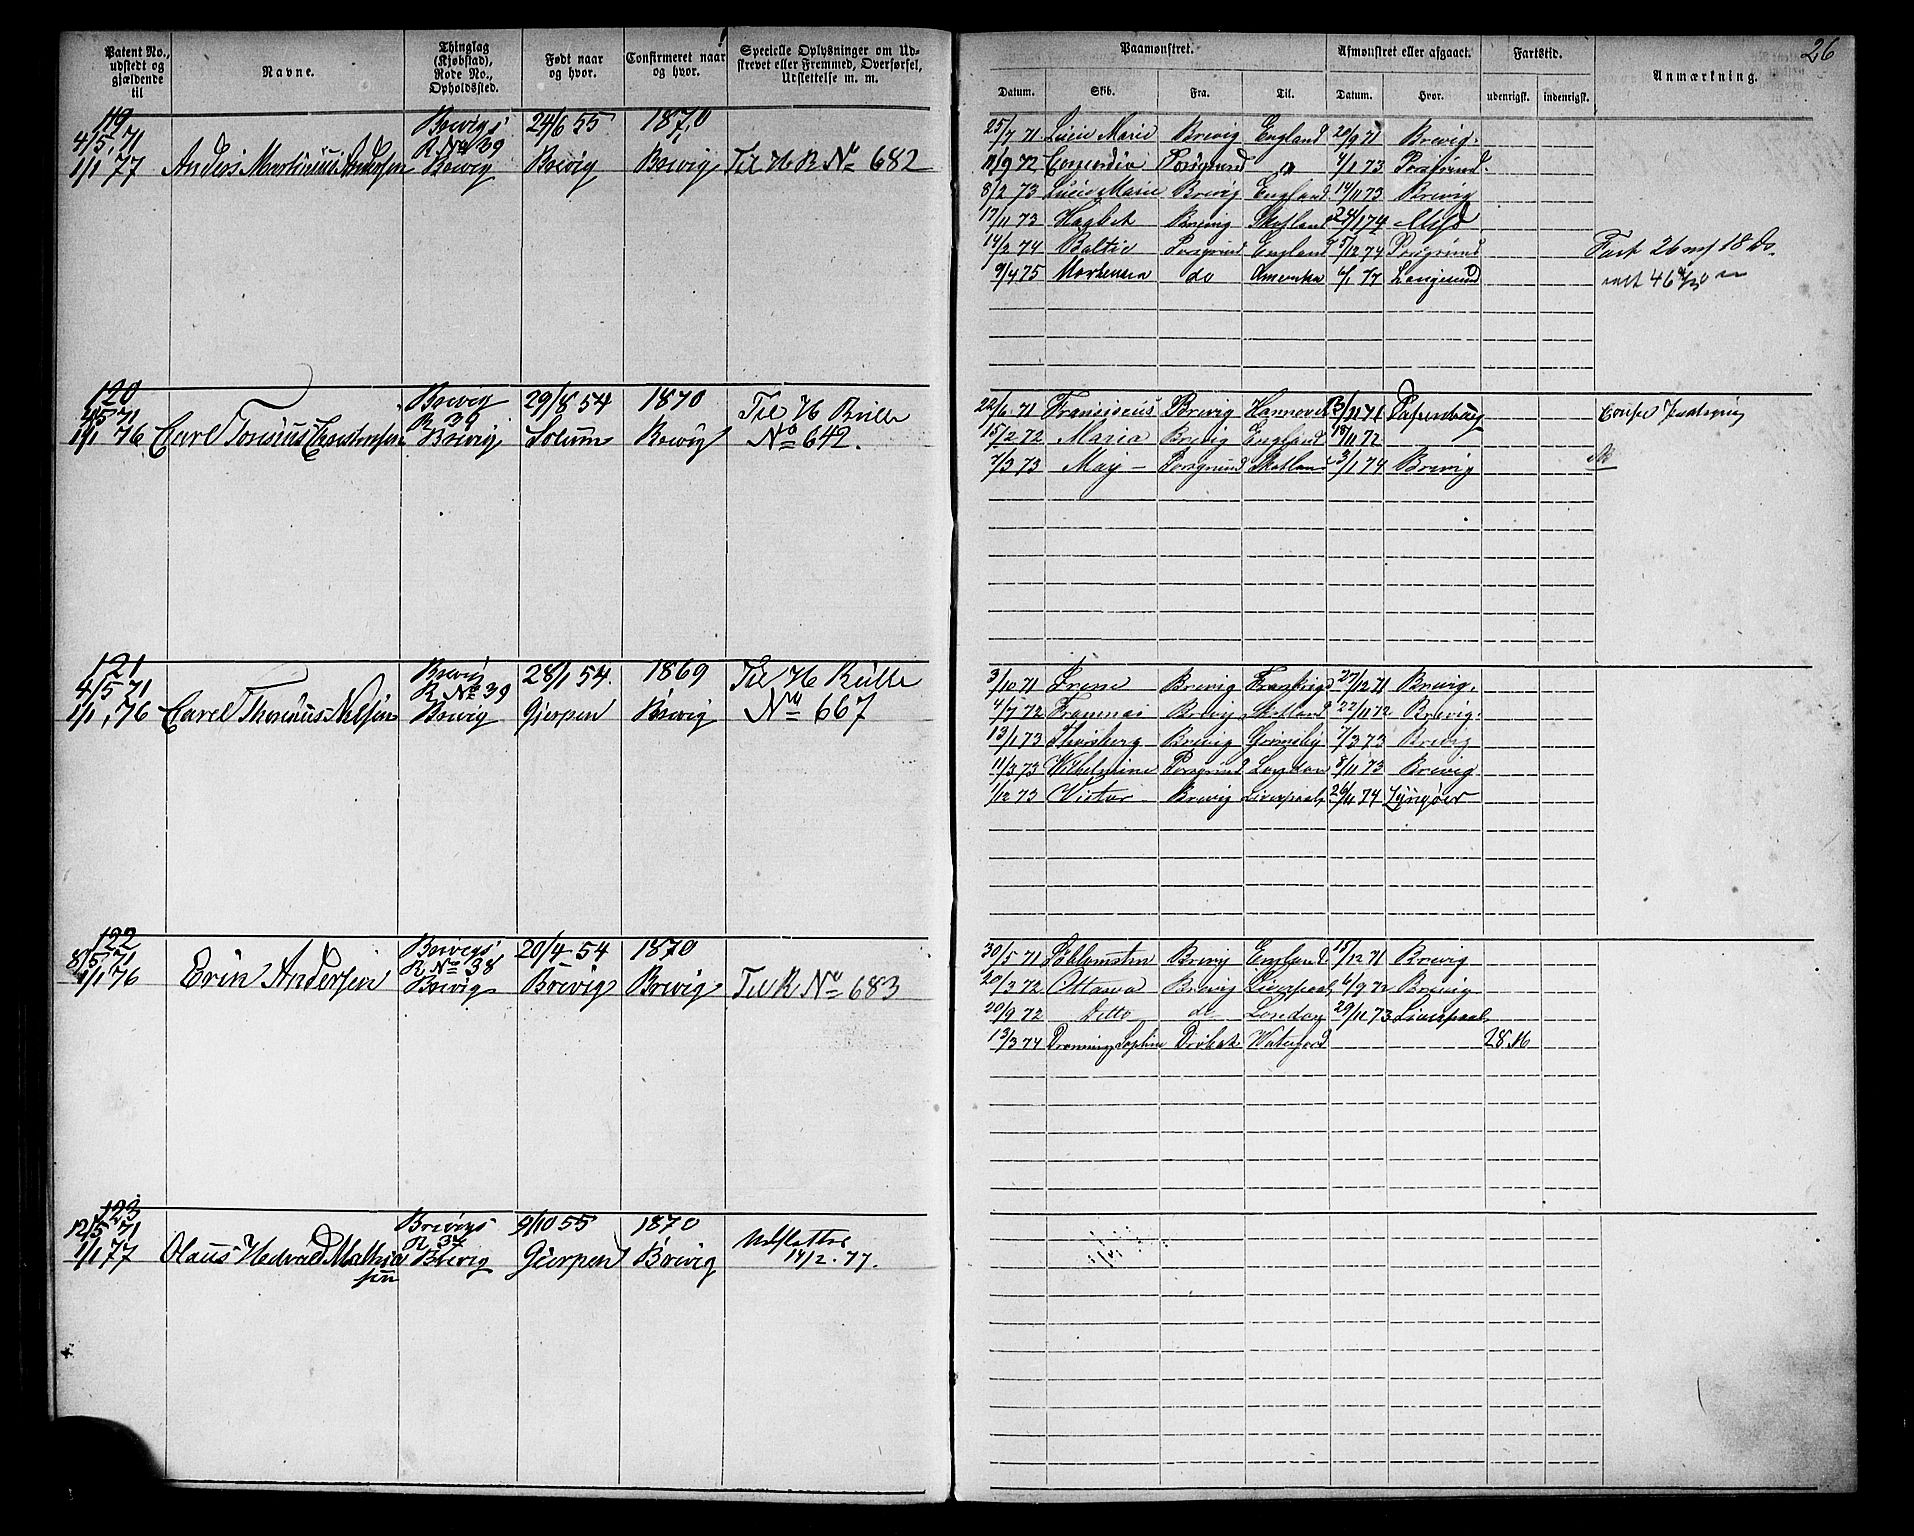 Patent No., udstedt og gjældende til
Navne.
Thinglag (Kjøbstad), Rode No., Opholdssted.
Født naar og hvor.
Confirmeret naar og hvor.
Specielle Oplysninger om Udskrevet eller Fremmed, Overførsel, Udslettelse m. m.
Paamønstret.
Datum.
Skib.
Fra.
Til.
Afmønstret eller afgaaet.
Datum.
Hvor.
Fartstid.
udenrigsk.
indenrigsk.
Anmærkning.
26
119
4/5 71
1/1 77
Anders Martinius Andersen
Brevigs
R No 39
Brevig
24/6 55
Brevig
1870
Brevig
Til H R No 682
25/7 71 Lucie Marie Brevig England 20/9 71 Brevig.
/9 72 Concordia Porsgrund " 4/1 73 Porsgrund.
8/2 73 Lucie Marie Brevig England 14/11 73 Brevig
17/11 73 Brevig Skotland 24/1 74
14/2 74 Baltic Porsgrund England 5/12 74 Porsgrund
9/4 75 Mortensen do Amerika 6/1 77 Langesund
Fart 26 18 do
120
4/5 71
1/1 76
Carl
Brevig
R 39
Brevig
29/8 54
Solum
1870
Brevig
Til H Rulle
No 642.
22/6 71 Franciscus Brevig Hannover 13/11 71 Papenburg
15/2 72 Maria Brevig England 18/11 72
7/3 73 May Porsgrund Skotland 3/1 74 Brevig
121
4/5 71
1/1 76
Carel Thorinus Nilsen
Brevig
R No 39
Brevig
28/1 54.
Gjerpen
1869
Brevig
Til H Rulle
No 667
3/10 71 Irene Brevig 27/12 71 Brevig.
4/7 72 Framnæs Brevig Skotland 22/11 72 Brevig.
13/1 73 Brevig Grimsby 7/3 73 Brevig
11/3 73 Wilhelmine Porsgrund London 8/11 73 Brevig
1/12 73 Victor Brevig Liverpool 26/11 74 Lyngøer
122
8/5 71
1/1 76
Erin Andersen
Brevigs
R No 38
Brevig
20/4 54
Brevig
1870
Brevig
Til R No 683
30/5 71 Brevig England 15/12 71 Brevig
20/3 72 Ottawa Brevig Liverpool 6/9 72 Brevig
20/9 72 Ditto do London 29/11 73 Liverpool
13/3 74 Dronning Sophie Drøbak Waterford 28 M
123
12/5 71
1/1 77
Olaus Hedvard Mathiesen
Brevigs
R 37
Brevig
9/10 55
Gjerpen
1870
Brevig
Udslettet
14/2. 77.